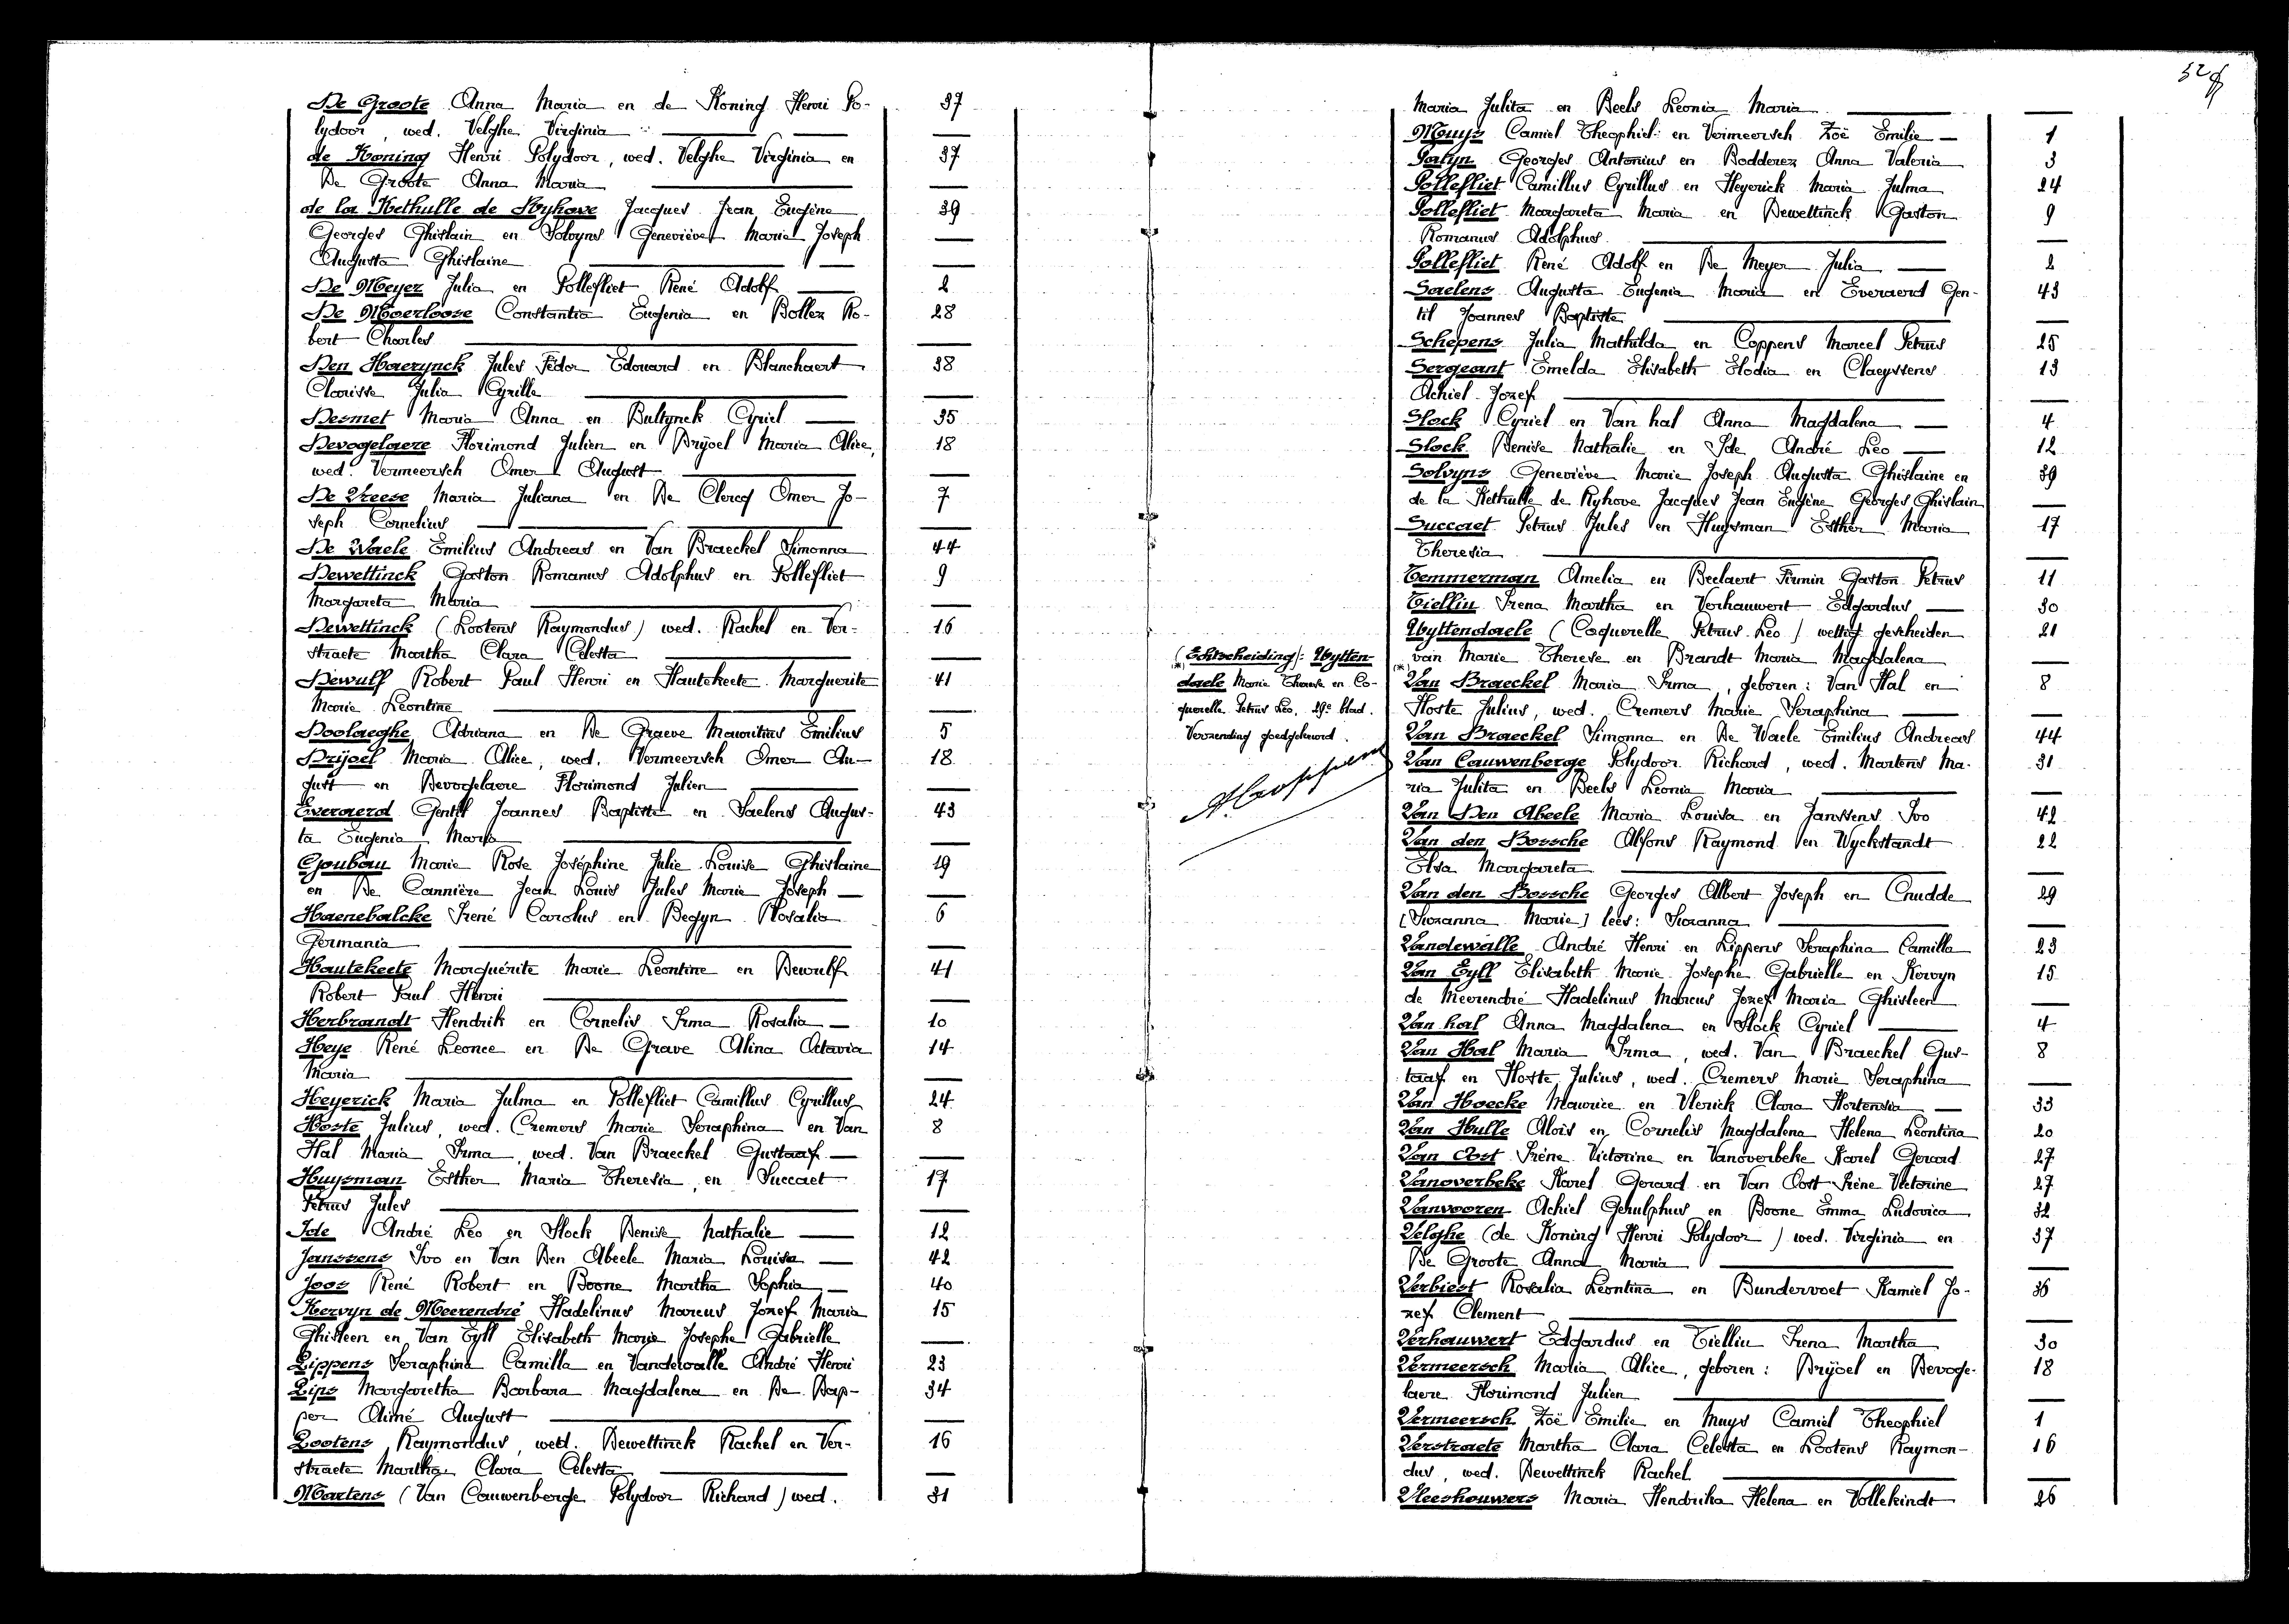 De Groote Anna Maria en de Koning Henri Po- 37
lydoor, wed. Velghe Virginia
de Koning Henri Polydoor, wed. Velghe Virginia en 37
De Groote Anna Maria
de la Kethulle de Ryhove Jacques Jean Eugène 39
Georges Ghislain en Solvyns Geneviève Marie Joseph
Augusta Ghislaine
De Meyer Julia en Pollefliet René Adolf 2
De Moerloose Constantia Eugenia en Bollez Ro- 28
bert Charles
Den Haerynck Jules Fédor Edouard en Blanchaert 38
Clarisse Julia Cyrille
Desmet Maria Anna en Bultynck Cyriel 35
Devogelaere Florimond Julien en Drijoel Maria Alice, 18
wed. Vermeersch Omer August
De Vreese Maria Juliana en De Clercq Omer Jo- 7
seph Cornelius
De Waele Emilius Andreas en Van Braeckel Simonna 44
Dewettinck Gaston Romanus Adolphus en Pollefliet 9
Margareta Maria
Dewettinck (Lootens Raymondus) wed. Rachel en Ver- 16
straete Martha Clara Celesta
Dewulf Robert Paul Henri en Hautekeete Marguerite 41
Marie Léontine
Doolaeghe Adriana en De Graeve Mauritius Emilius 5
Drijoel Maria Alice, wed. Vermeersch Omer Au- 18
gust en Devogelaere Florimond Julien
Everaerd Gentil Joannes Baptiste en Saelens Augus- 43
ta Eugenia Maria
Goubau Marie Rose Joséphine Julie Louise Ghislaine 19
en De Cannière Jean Louis Jules Marie Joseph
Haenebalcke Irené Carolus en Begyn Rosalia 6
Germania
Hautekeete Marguérite Marie Léontine en Dewulf 41
Robert Paul Henri
Herbrandt Hendrik en Cornelis Irma Rosalia 10
Heye René Leonce en De Grave Alina Octavia 14
Maria
Heyerick Maria Julma en Pollefliet Camillus Cyrillus 24
Hoste Julius, wed. Cremers Marie Seraphina en Van 8
Hal Maria Irma, wed. Van Braeckel Gustaaf
Huysman Esther Maria Theresia, en Succaet 17
Petrus Jules
Ide André Leo en Slock Denise Nathalie 12
Janssens Ivo en Van Den Abeele Maria Louisa 42
Joos René Robert en Boone Martha Sophia 40
Kervyn de Meerendré Hadelinus Marcus Jozef Maria 15
Ghisleen en Van Eyll Elisabeth Marie Josephe Gabrielle
Lippens Seraphina Camilla en Vandewalle André Henri 23
Lips Margaretha Barbara Magdalena en De Dap- 34
per Aimé August
Lootens Raymondus, wed. Dewettinck Rachel en Ver- 16
straete Martha Clara Celesta
Martens (Van Cauwenberge Polydoor Richard) wed. 31
Maria Julita en Beels Leonia Maria
Muys Camiel Theophiel en Vermeersch Zoë Emilie 1
Patyn Georges Antonius en Bodderez Anna Valeria 3
Pollefliet Camillus Cyrillus en Heyerick Maria Julma 24
Pollefliet Margareta Maria en Dewettinck Gaston 9
Romanus Adolphus
Pollefliet René Adolf en De Meyer Julia 2
Saelens Augusta Eugenia Maria en Everaerd Gen- 43
til Joannes Baptiste
Schepens Julia Mathilda en Coppens Marcel Petrus 25
Sergeant Emelda Elisabeth Elodia en Claeyssens 13
Achiel Jozef
Slock Cyriel en Van hal Anna Magdalena 4
Slock Denise Nathalie en Ide André Leo 12
Solvyns Geneviève Marie Joseph Augusta Ghislaine en 39
de la Kethulle de Ryhove Jacques Jean Eugène Georges Ghislain
Succaet Petrus Jules en Huysman Esther Maria 17
Theresia
Temmerman Amelia en Beelaert Firmin Gaston Petrus 11
Tielliu Irena Martha en Verhauwert Edgardus 30
Uyttendaele (Coquerelle Petrus Leo) wettig gescheiden 21
van Marie Therese en Brandt Maria Magdalena
(*) (Echtscheiding): Uytten-
daele Marie Therese en Co-
querelle Petrus Leo, 29e blad.
Verzending goedgekeurd.
(*)
Van Braeckel Maria Irma, geboren: Van Hal en 8
Hoste Julius, wed. Cremers Marie Seraphina
Van Braeckel Simonna en De Waele Emilius Andreas 44
Van Cauwenberge Polydoor Richard, wed. Martens Ma- 31
ria Julita en Beels Leonia Maria
Van Den Abeele Maria Louisa en Janssens Ivo 42
Van den Bossche Alfons Raymond en Wyckstandt 22
Elsa Margareta
Van den Bossche Georges Albert Joseph en Cnudde 29
[Suzanna Marie] lees: Suzanna
Vandewalle André Henri en Lippens Seraphina Camilla 23
Van Eyll Elisabeth Marie Josephe Gabrielle en Kervyn 15
de Meerendré Hadelinus Marcus Jozef Maria Ghisleen
Van hal Anna Magdalena en Slock Cyriel 4
Van Hal Maria Irma, wed. Van Braeckel Gus- 8
taaf en Hoste Julius, wed. Cremers Marie Seraphina
Van Hoecke Maurice en Vlerick Clara Hortensia 33
Van Hulle Alois en Cornelis Magdalena Helena Leontina 20
Van Oost Irène Victorine en Vanoverbeke Karel Gerard 27
Vanoverbeke Karel Gerard en Van Oost Irène Victorine 27
Vanvooren Achiel Gehulphus en Boone Emma Ludovica 32
Velghe (de Koning Henri Polydoor) wed. Virginia en 37
De Groote Anna Maria
Verbiest Rosalia Leontina en Bundervoet Kamiel Jo- 36
zef Clement
Verhauwert Edgardus en Tielliu Irena Martha 30
Vermeersch Maria Alice, geboren: Drijoel en Devoge- 18
laere Florimond Julien
Vermeersch Zoë Emilie en Muys Camiel Theophiel 1
Verstraete Martha Clara Celesta en Lootens Raymon- 16
dus, wed. Dewettinck Rachel
Vleeshouwers Maria Hendrika Helena en Vollekindt 26